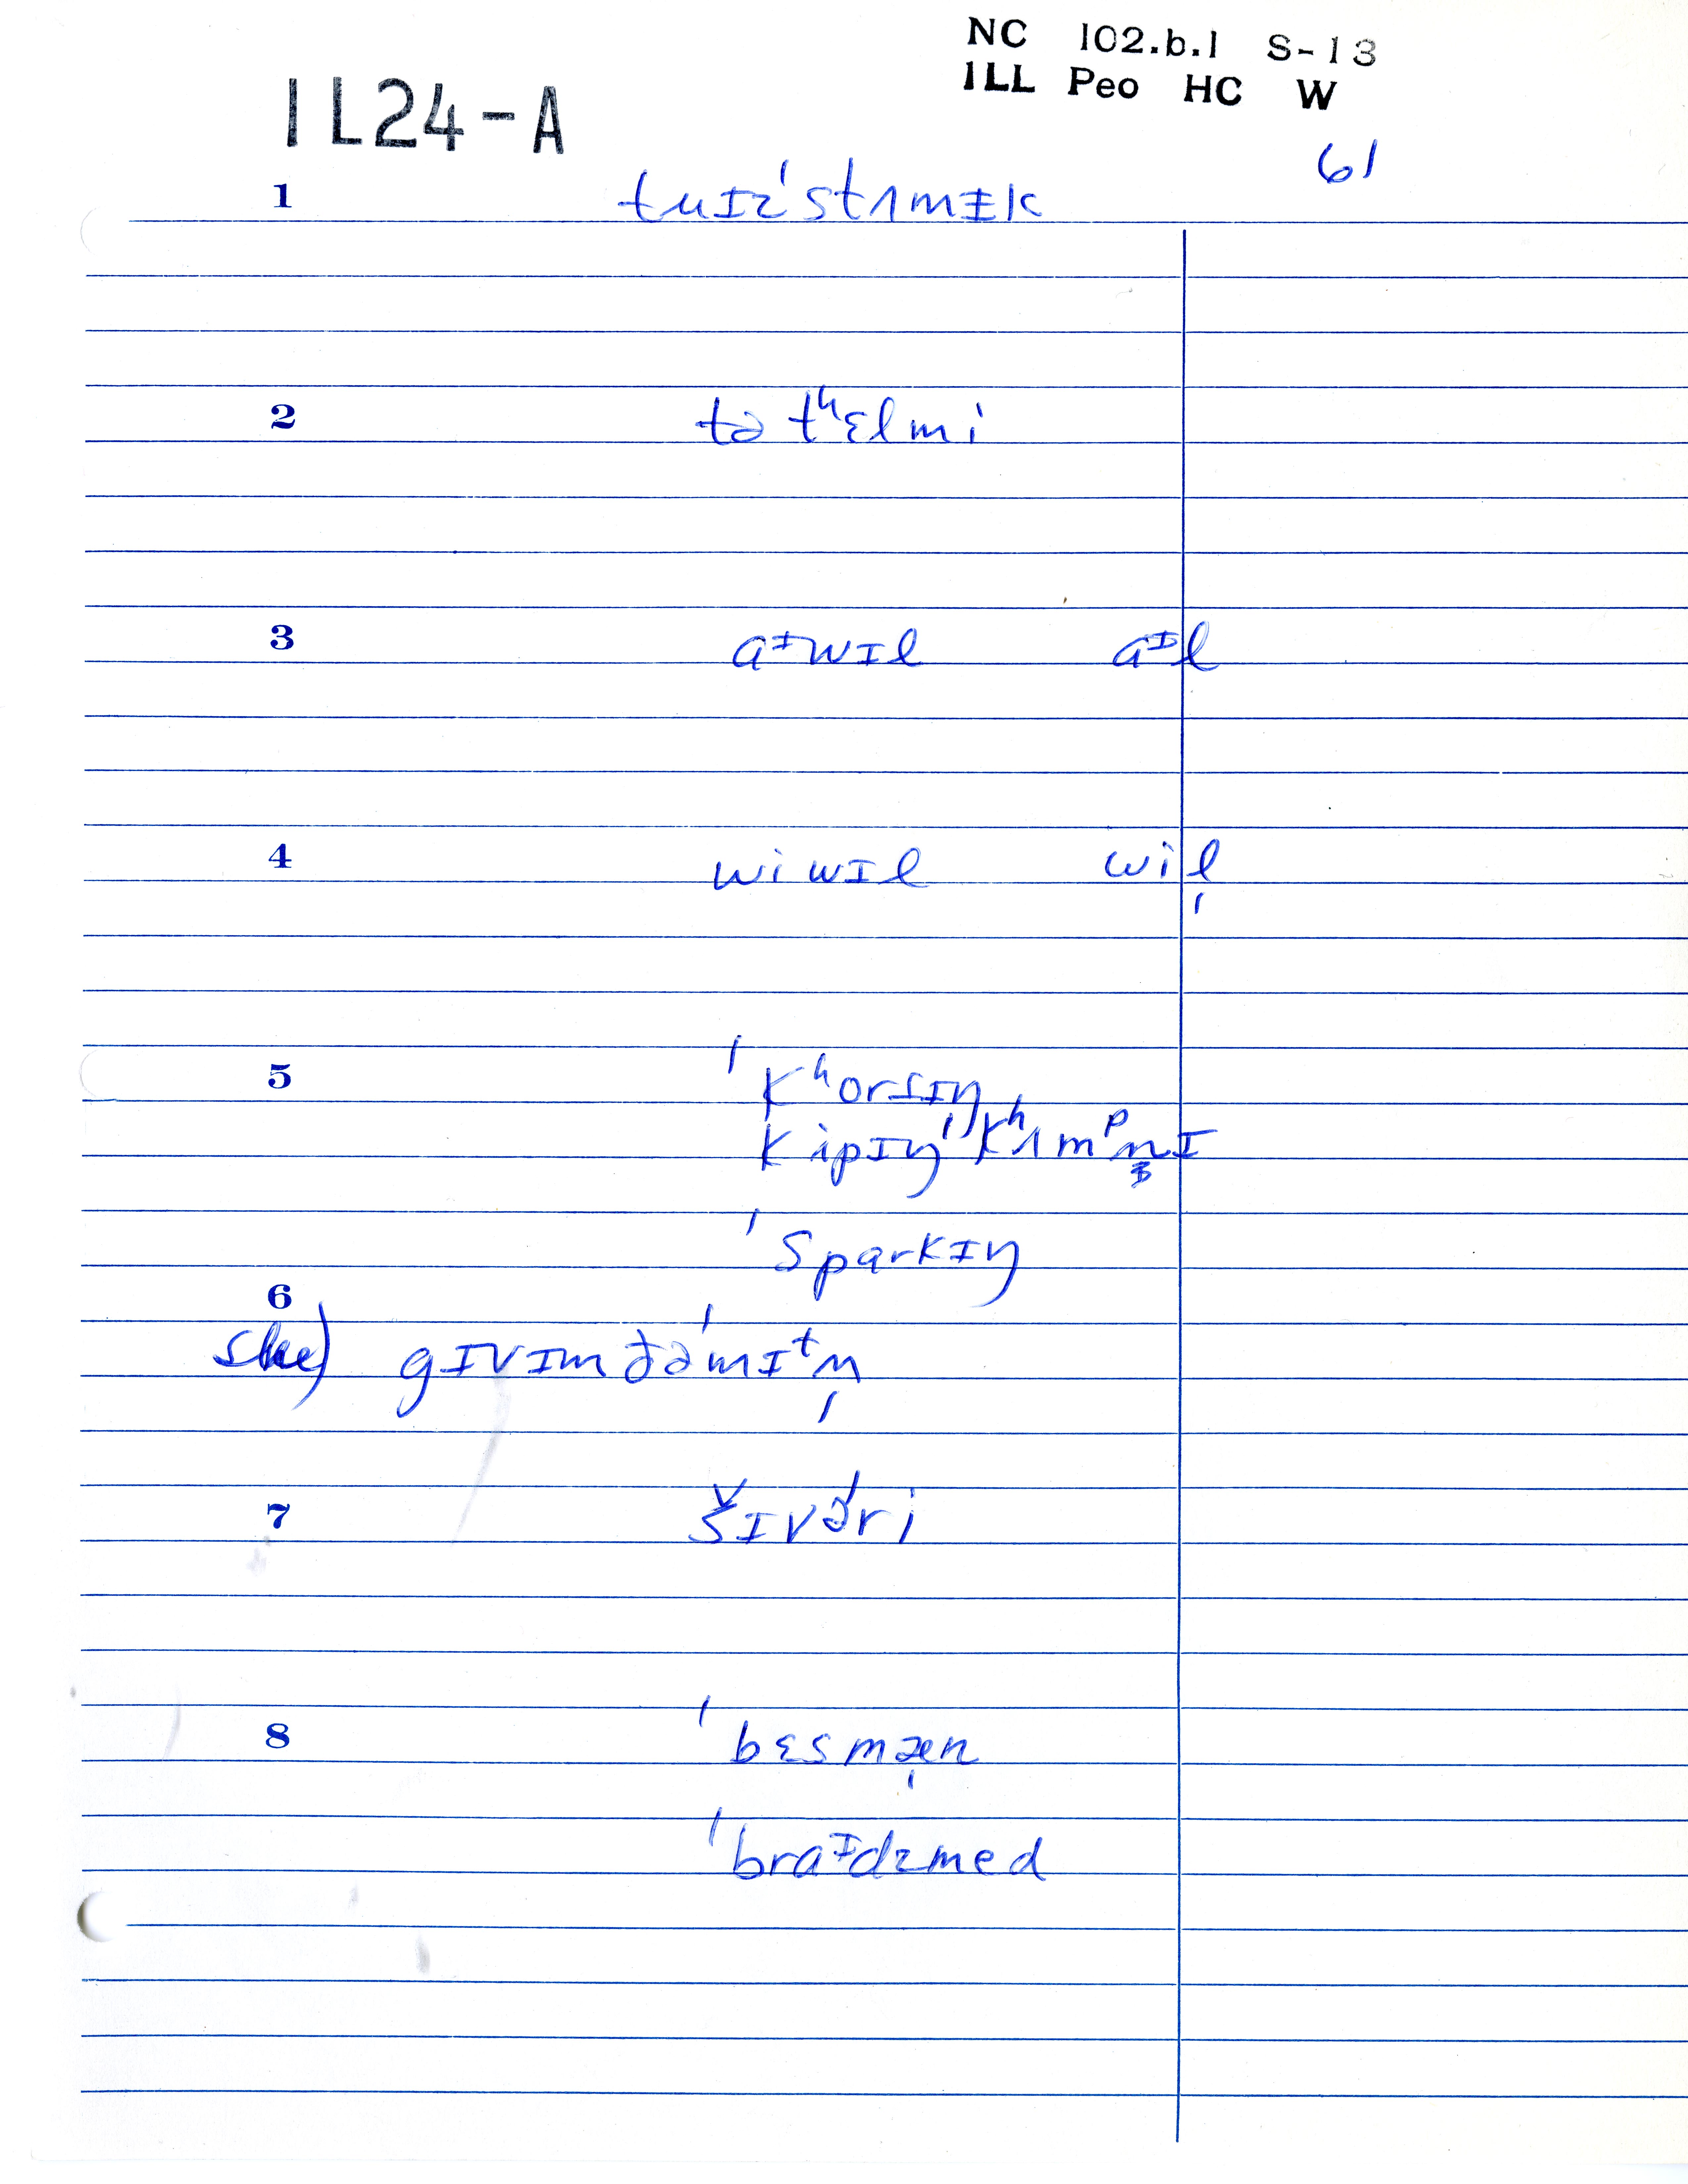 NC 102.b.1 S-13
ILL Peo HC W
IL24-A
61
1 tuɪz'stʌmɪk
2 tə tʰɛlmi
3 aᶦwɪl aᶦl
4 wiwɪl wil̩
5 ˈkʰorsɪŋ
kipɪŋ'kʰʌmᵖnɪ
ˈsparkɪŋ
6
she) gɪvɪmðə'mɪᵗn̩
7 šɪvə́ri
8 ˈbɛsmæ̩n
ˈbraᶦdzmed